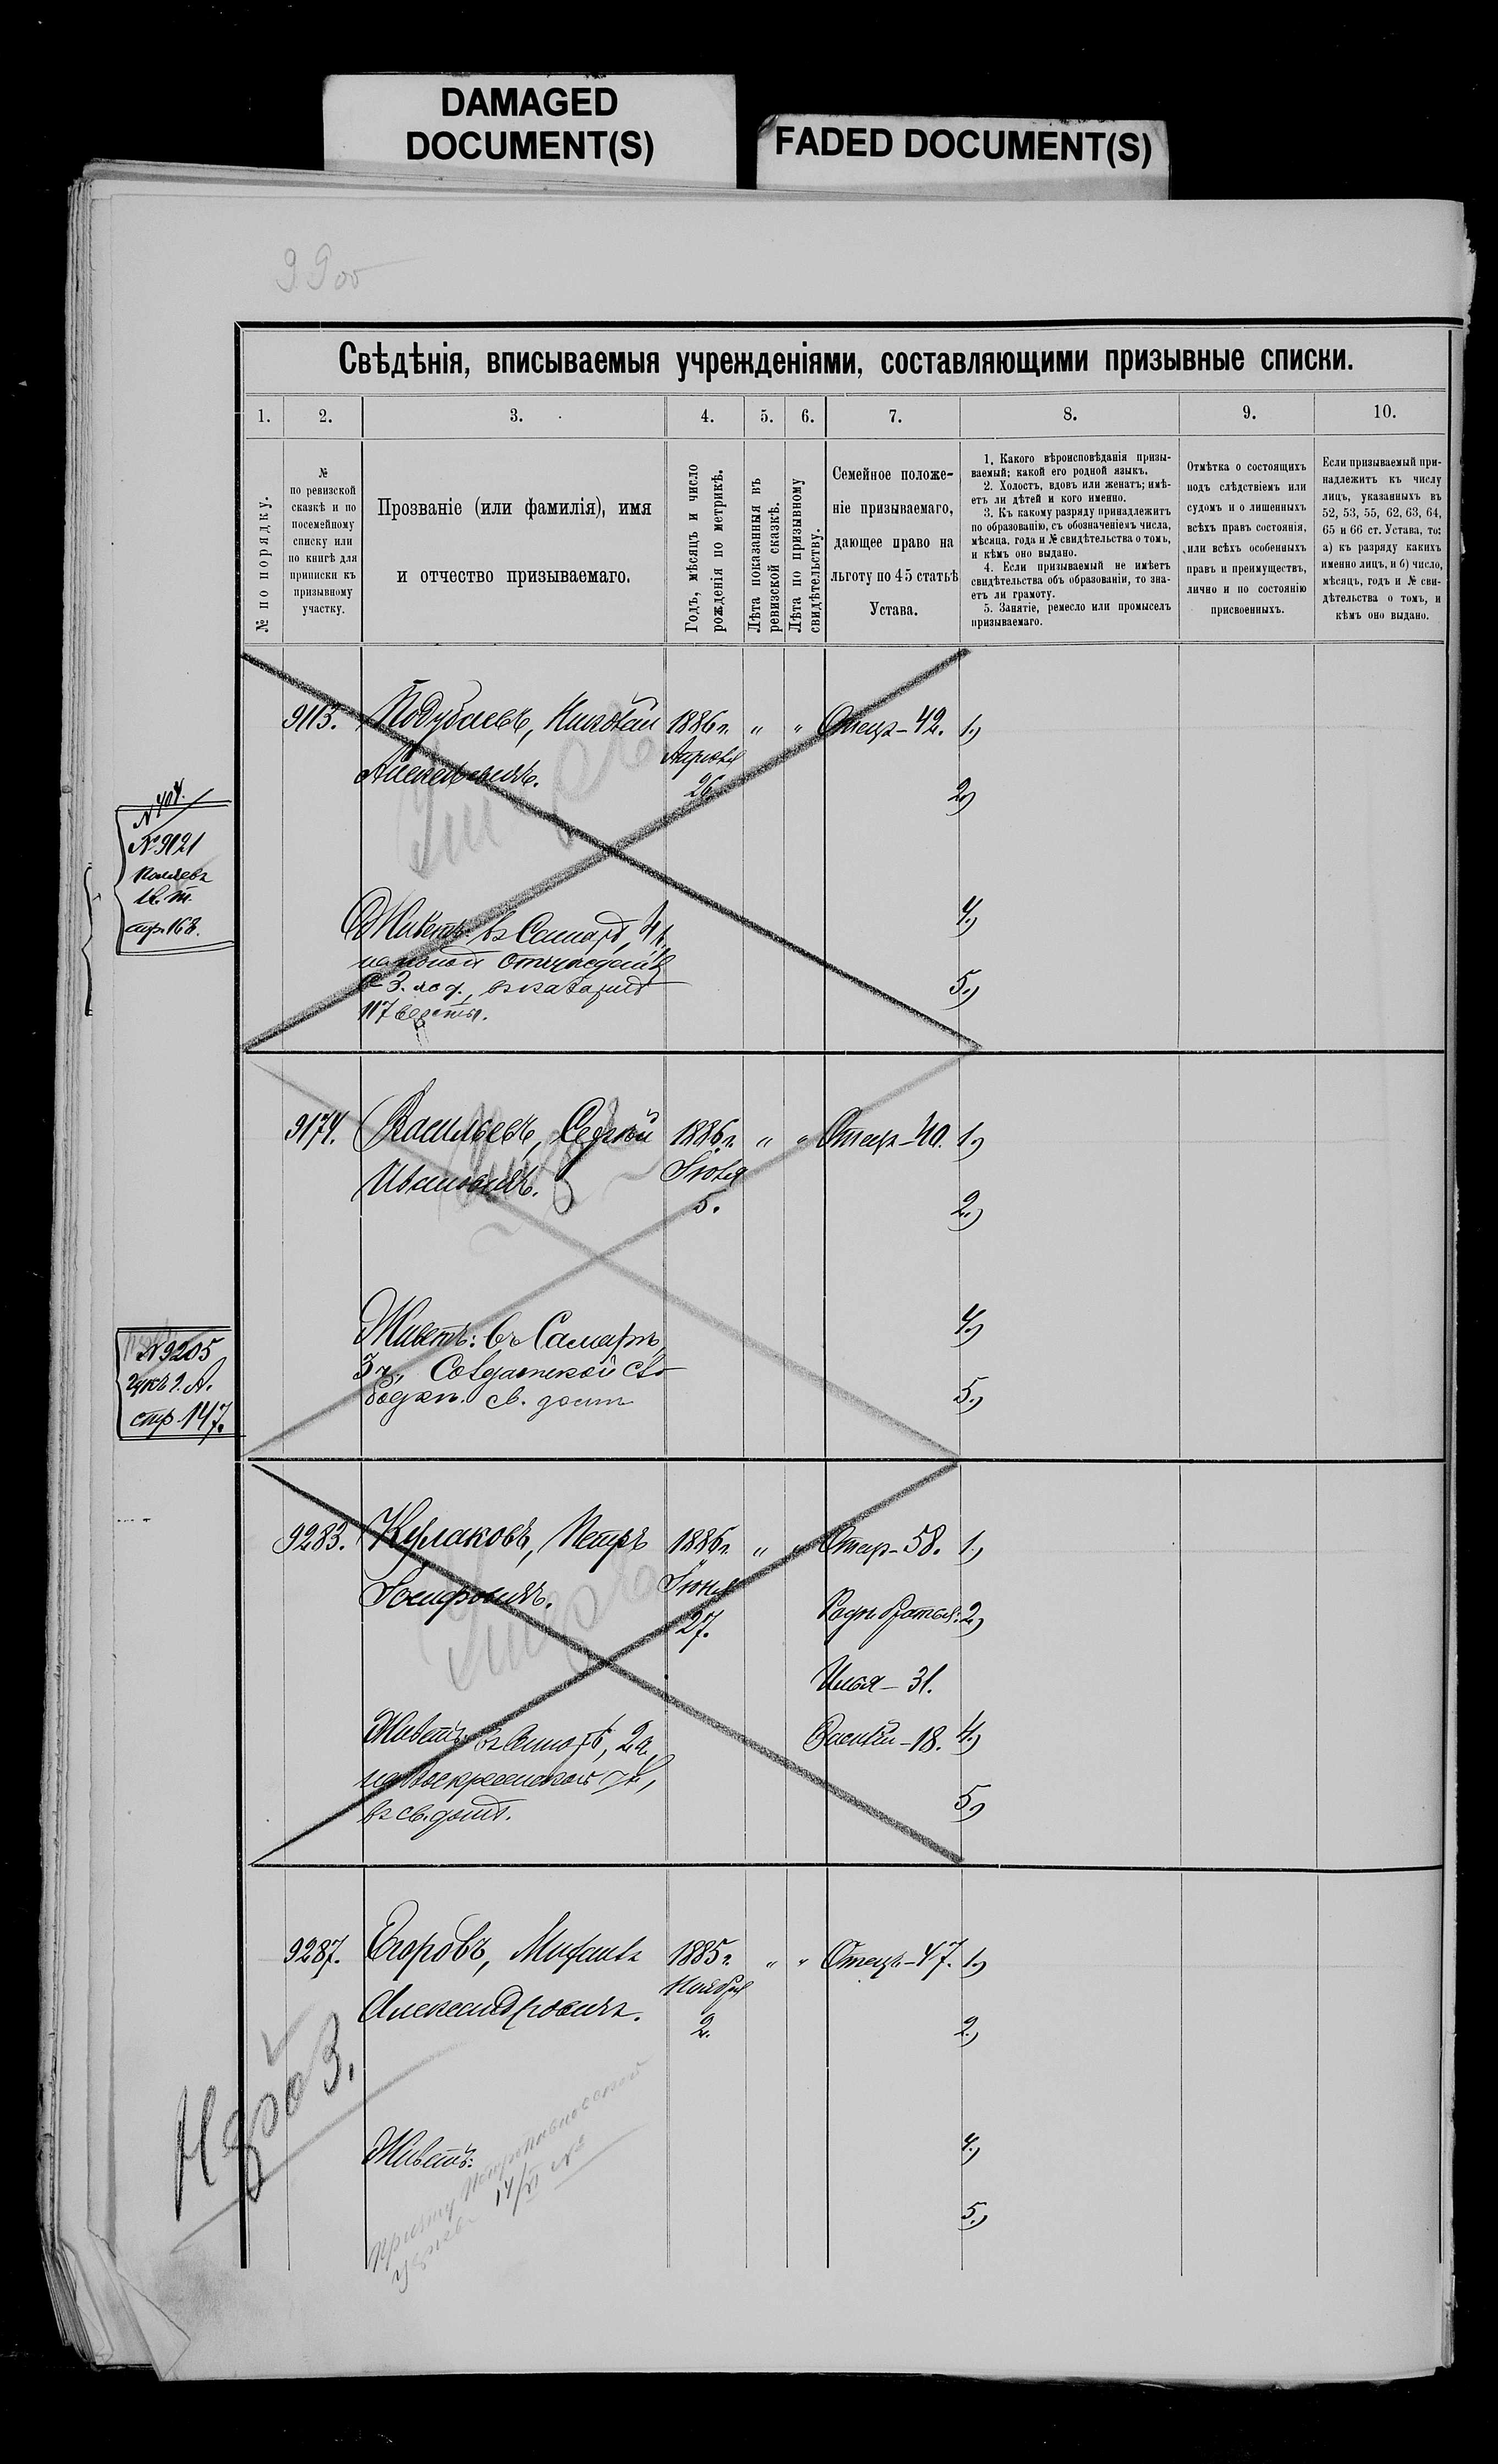 DAMAGED
DOCUMENT(S)
FADED DOCUMENT(S)
9900
Свѣдѣнія, вписываемыя учрежденіями, составляющими призывные списки.
1. 2. 3. 4. 5. 6. 7. 8. 9. 10.
№ по порядку.
№
по ревизской
сказкѣ и по
посемейному
списку или
по книгѣ для
приписки къ
призывному
участку.
Прозваніе (или фамилія), имя
и отчество призываемаго.
Годъ, мѣсяцъ и число
рожденія по метрикѣ.
Лѣта показанныя въ
ревизской сказкѣ.
Лѣта по призывному
свидѣтельству.
Семейное положе-
ніе призываемаго,
дающее право на
льготу по 45 статьѣ
Устава.
1. Какого вѣроисповѣданія призы-
ваемый; какой его родной языкъ.
2. Холостъ, вдовъ или женатъ; имѣ-
етъ ли дѣтей и кого именно.
3. Къ какому разряду принадлежитъ
по образованію, съ обозначеніемъ числа,
мѣсяца, года и № свидѣтельства о томъ,
и кѣмъ оно выдано.
4. Если призываемый не имѣетъ
свидѣтельства объ образованіи, то зна-
етъ ли грамоту.
5. Занятіе, ремесло или промыселъ
призываемаго.
Отмѣтка о состоящихъ
подъ слѣдствіемъ или
судомъ и о лишенныхъ
всѣхъ правъ состоянія,
или всѣхъ особенныхъ
правъ и преимуществъ,
лично и по состоянію
присвоенныхъ.
Если призываемый при-
надлежитъ къ числу
лицъ, указанныхъ въ
52, 53, 55, 62, 63, 64,
65 и 66 ст. Устава, то:
а) къ разряду какихъ
именно лицъ, и б) число,
мѣсяцъ, годъ и № сви-
дѣтельства о томъ, и
кѣмъ оно выдано.
9113. Николай 1886 г. " " Отецъ – 42. 1.)
Алексѣевичъ. Апрѣля
26. 2.)
Умеръ
№ 404.
№ 9121
стр. 168.
Живетъ: въ Самарѣ, 4 ч. 4.)
5.)
117 версты.
9174. Васильевъ, Сергѣй 1886 г. " " Отецъ – 40. 1.)
Ивановичъ. Іюля
5. 2.)
Умеръ
№ 9205
стр. 147.
Живетъ: въ Самарѣ, 4.)
3 ч., Солдатской сло-
бодкѣ. св. 5.)
9283. Кулаковъ, Петръ 1886 г. " " Отецъ – 58. 1.)
Іосифовичъ. Іюня
27. Родн. братья: 2.)
Умеръ
Илья – 31.
Живетъ: въ Самарѣ, 2 ч. Василій – 18. 4.)
на Воскресенской
5.)
9287. Егоровъ, Михаилъ 1885 г. " " Отецъ – 47. 1.)
Александровичъ. Ноября
2. 2.)
Живетъ: 4.)
Причту Петропавловской
17/VI №
5.)